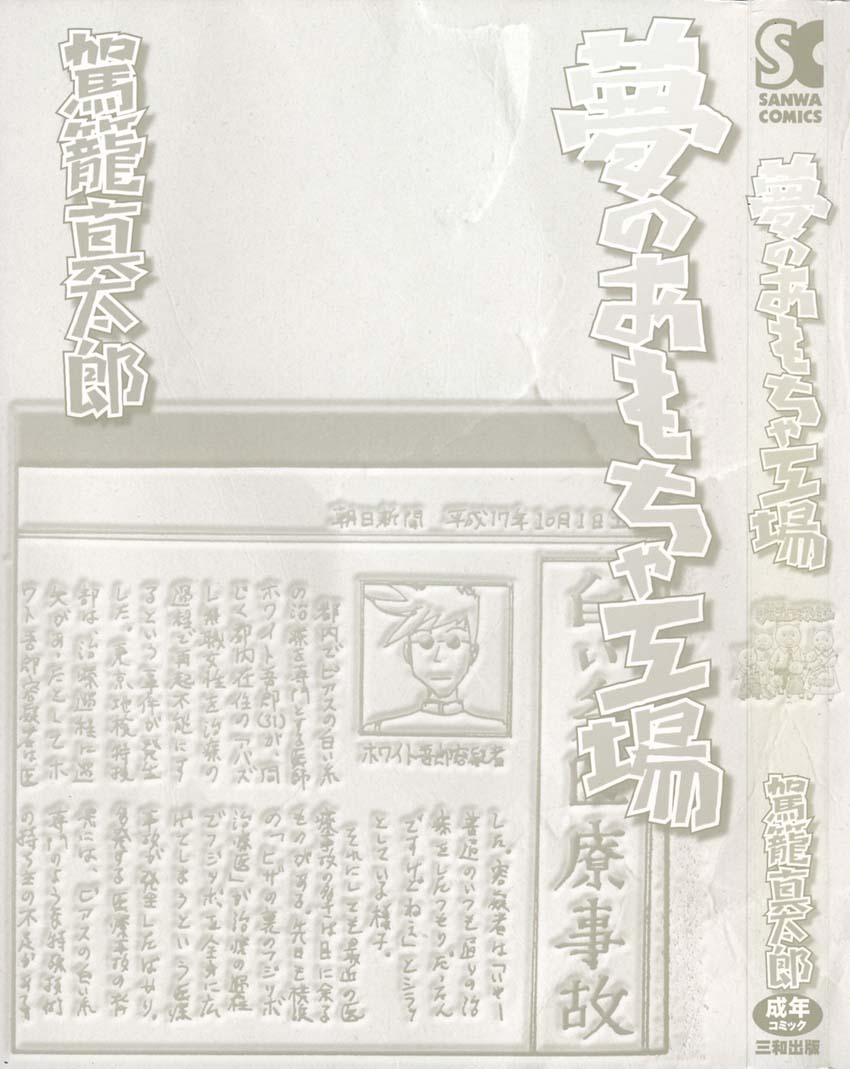 駕籠真太郎
夢のおもちゃ工場
朝日新聞 平成17年10月1日
白い糸医療事故
ホワイト吾郎容疑者
都内でピアスの白い糸
の治療を専門とする医師
ホワイト吾郎(31)が、同
じく都内在住のアバズ
レ無職女性を治療の
過程で再起不能にす
るという事件が発生
した。東京地検特捜
部は、治療過程に過
失があったとしてホ
ワイト吾郎容疑者は医
した。容疑者は「いやー
普段のいつも通りの治
療をしたつもりだったん
ですけどねえ」とシラッ
としている様子。
それにしても最近の医
療事故の多さは目に余る
ものがある。先日も横浜
の「ヒザの裏のフジツボ
治療医」が治療の過程
でフジツボを全身に広
げてしまうという医療
事故が発生したばかり。
多発する医療事故の背
景には、ピアスの白い糸
専門のような特殊技術
の持ち主の不足がある
SC
SANWA
COMICS
夢のおもちゃ工場
駕籠真太郎
成年
コミック
三和出版